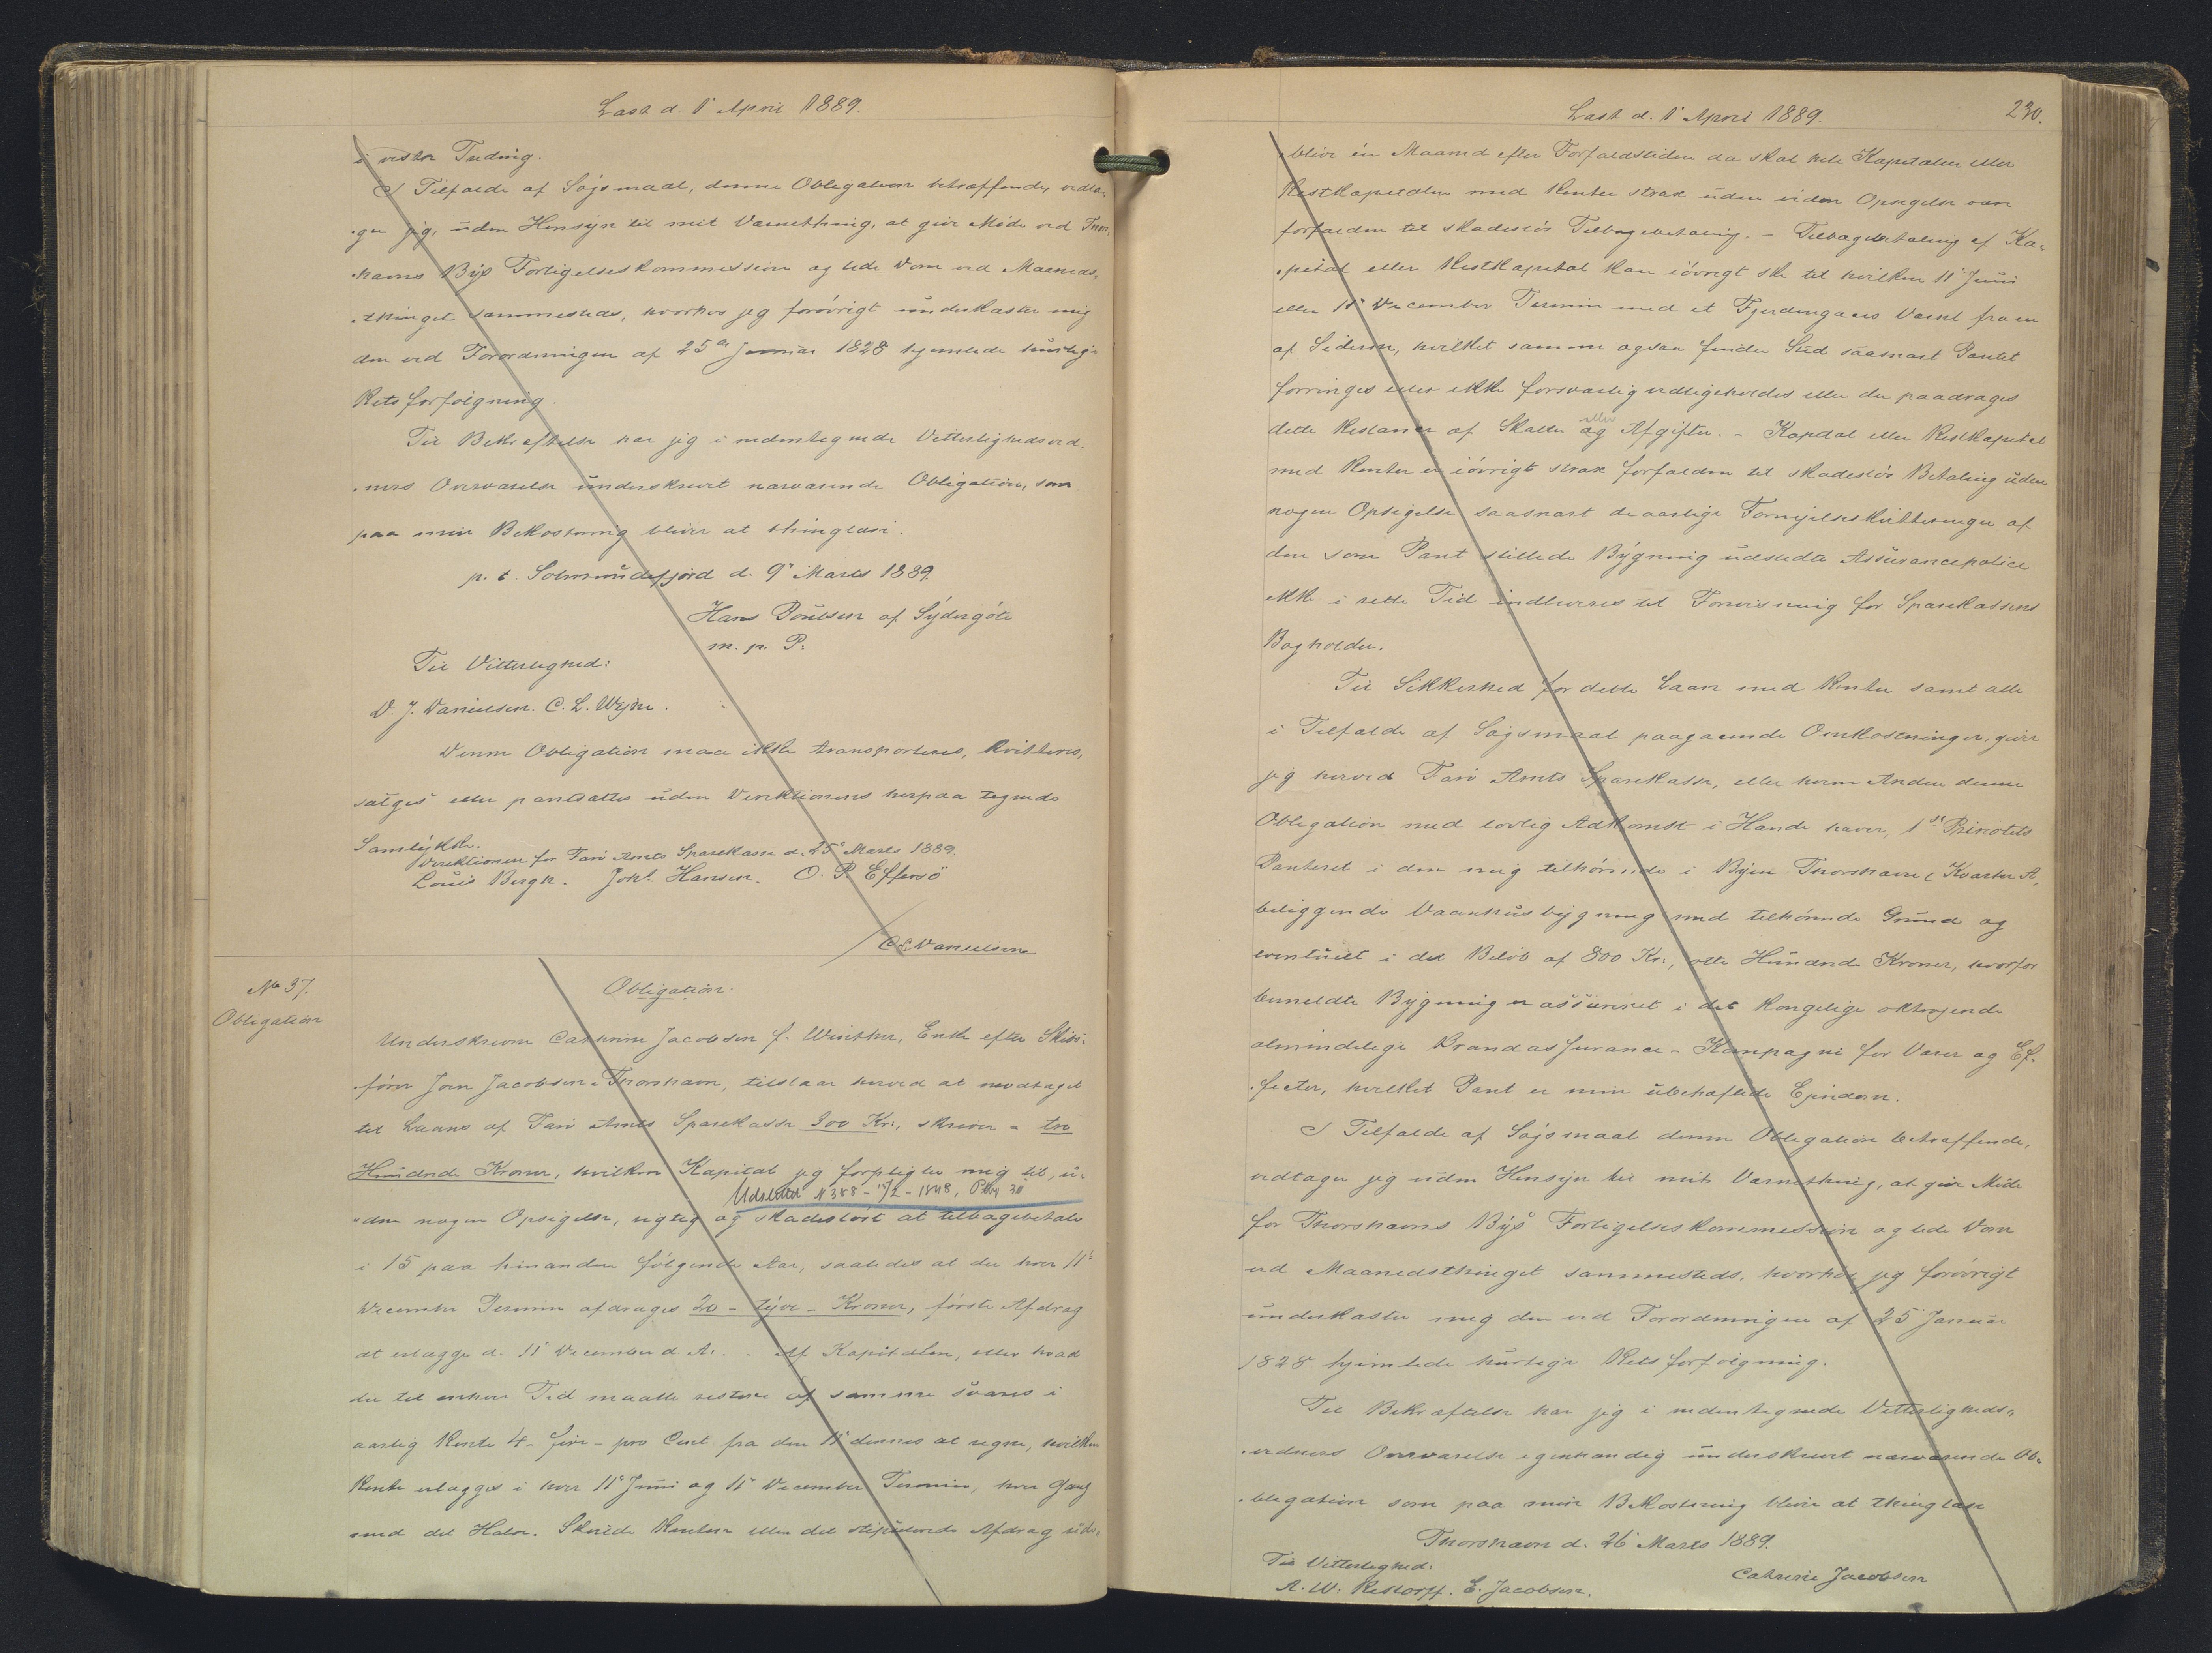 Læst d. 1' April 1889.
i vestre Inding.
I Tilfælde af Søgsmaal, denne Obligation betræffende, vedta-
.ger jeg, uden Hensyn til mit Værnething, at give Møde ved Thors,
.havns Bys Forligelseskommission og lide Dom ved Maaneds,
.thinget sammesteds, hvorhos jeg forøvrigt underkaster mig
den ved Forordningen af 25de Januar 1828 hjemlede hurtige
Retsforfølgning.
Til Bekræftelse har jeg i nedentegnede Vitterlighedsvid.
.ners Overværelse underskrevet nærværende Obligation, som
paa min Bekostning bliver at thinglæse.
p. t. Solmundefjord d. 9' Marts 1889.
Hans Poulsen af Sydergöte
m. p. P.
Til Vitterlighed:
D. J. Danielsen. C. L. Wejhe.
Denne Obligation maa ikke transporteres, kvitteres,
sælges eller pantsættes uden Direktionens herpaa tegnede
Samtykke.
Direktionen for Færø Amts Sparekasse d. 25' Marts 1889.
Louis Bergh. Johs. Hansen. O. P. Effersö
Danielsen
No 37.
Obligation
Obligation.
Underskrevne Cathrine Jacobsen f. Winther, Enke efter Skibs,
.fører Joen Jacobsen i Thorshavn, tilstaar herved at modtaget
til Laans af Færø Amts Sparekasse 300 Kr., skriver - tre
Hundrede Kroner, hvilken Kapital jeg forpligter mig til, u-
Udslettet N 388 - - 1848,
.den nogen Opsigelse, rigtig og skadesløst at tilbagebetale
i 15 paa hinanden følgende Aar, saaledes at der hver 11'
December Termin afdrages 20 - tyve - Kroner, første Afdrag
at erlægge d. 11' December d. A. . Af Kapitalen, eller hvad
der til enhver Tid maatte restere af samme svares i
aarlig Rente 4 - fire - pro Cent fra den 11' dennes at regne, hvilken
Rente erlægges i hver 11' Juni og 11' December Termin, hver Gang
med det Halve. Skulde Renten eller det stipulerede Afdrag ude,
Læst d. 1' April 1889.
230.
.blive én Maaned efter Forfaldstiden da skal hele Kapitalen eller
Restkapitalen med Renter strax uden videre Opsigelse være
forfalden til skadesløs Tilbagebetaling. - Tilbagebetaling af Ka-
.pital eller Restkapital kan iøvrigt ske til hvilken 11' Juni
eller 11' December Termin med et Fjerdingaars Varsel fra en
af Siderne, hvilket samme ogsaa finder Sted saasnart Pantet
forringes eller ikke forsvarlig vedligeholdes eller der paadrages
dette Restancer af Skatter og Afgifter. - Kapital eller Restkapital
eller
med Renter er iøvrigt strax forfalden til skadesløs Betaling uden
nogen Opsigelse saasnart de aarlige Fornyelseskvitteringer af
den som Pant stillede Bygning udstedte Assurancepolice
ikke i rette Tid indleveres til Forevisning for Sparekassens
Bogholder.
Til Sikkerhed for dette Laan med Renter samt alle
i Tilfælde af Søgsmaal paagaaende Omkostninger, giver
jeg herved Færø Amts Sparekasse, eller hvem Anden denne
Obligation med lovlig Adkomst i Hænde haver, 1ste Prioritets
Panteret i den mig tilhørende i Byen Thorshavn, Kvarter A,
beliggende Vaanhusbygning med tilhørende Grund og
eventuelt i det Beløb af 800 Kr., otte Hundrede Kroner, hvorfor
bemeldte Bygning er assureret i det kongelige oktrojerede
almindelige Brandassurance-Kompagni for Varer og Ef-
.fecter, hvilket Pant er min ubehæftede Ejendom.
I Tilfælde af Søgsmaal denne Obligation betræffende,
vedtager jeg uden Hensyn til mit Værnething, at give Møde
for Thorshavns Bys Forligelseskommission og lide Dom
ved Maanedsthinget sammesteds, hvorhos jeg forøvrigt
underkaster mig den ved Forordningen af 25' Januar
1828 hjemlede hurtige Retsforfølgning.
Til Bekræftelse har jeg i nedentegnede Vitterligheds,
.vidners Overværelse egenhændig underskrevet nærværende Ob-
.ligation som paa min Bekostning bliver at thinglæse
Thorshavn d. 26' Marts 1889.
Til Vitterlighed:
Cathrine Jacobsen
A. W. Restorff. E. Jacobsen.